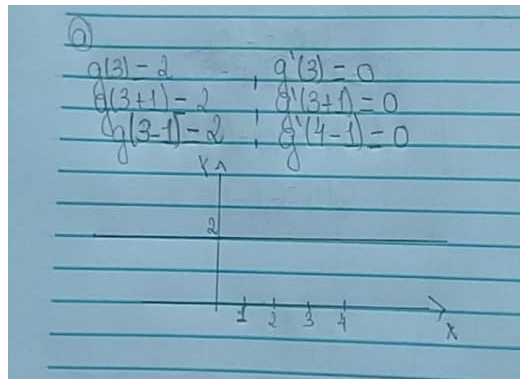 a
g(3) = 2 , g'(3) = 0
g(3+1) = 2 g'(3+1) = 0
g(3-1) = 2 , g'(4-1) = 0
Y
2
1 2 3 4
X